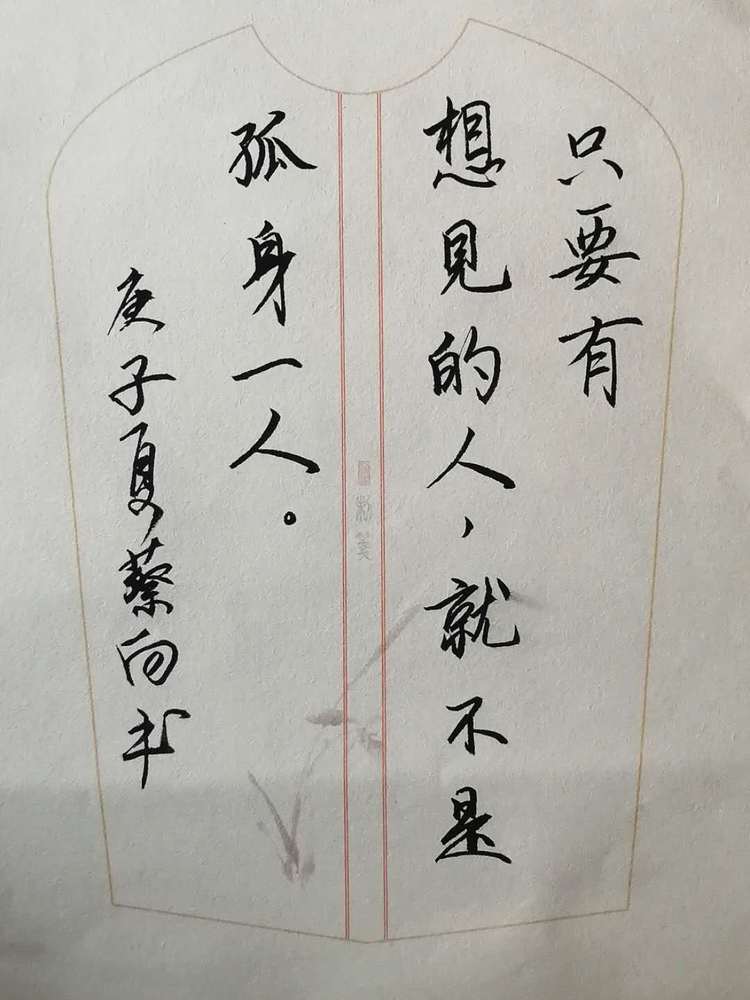 只要有
想见的人，就不是
孤身一人。
庚子夏蔡向书